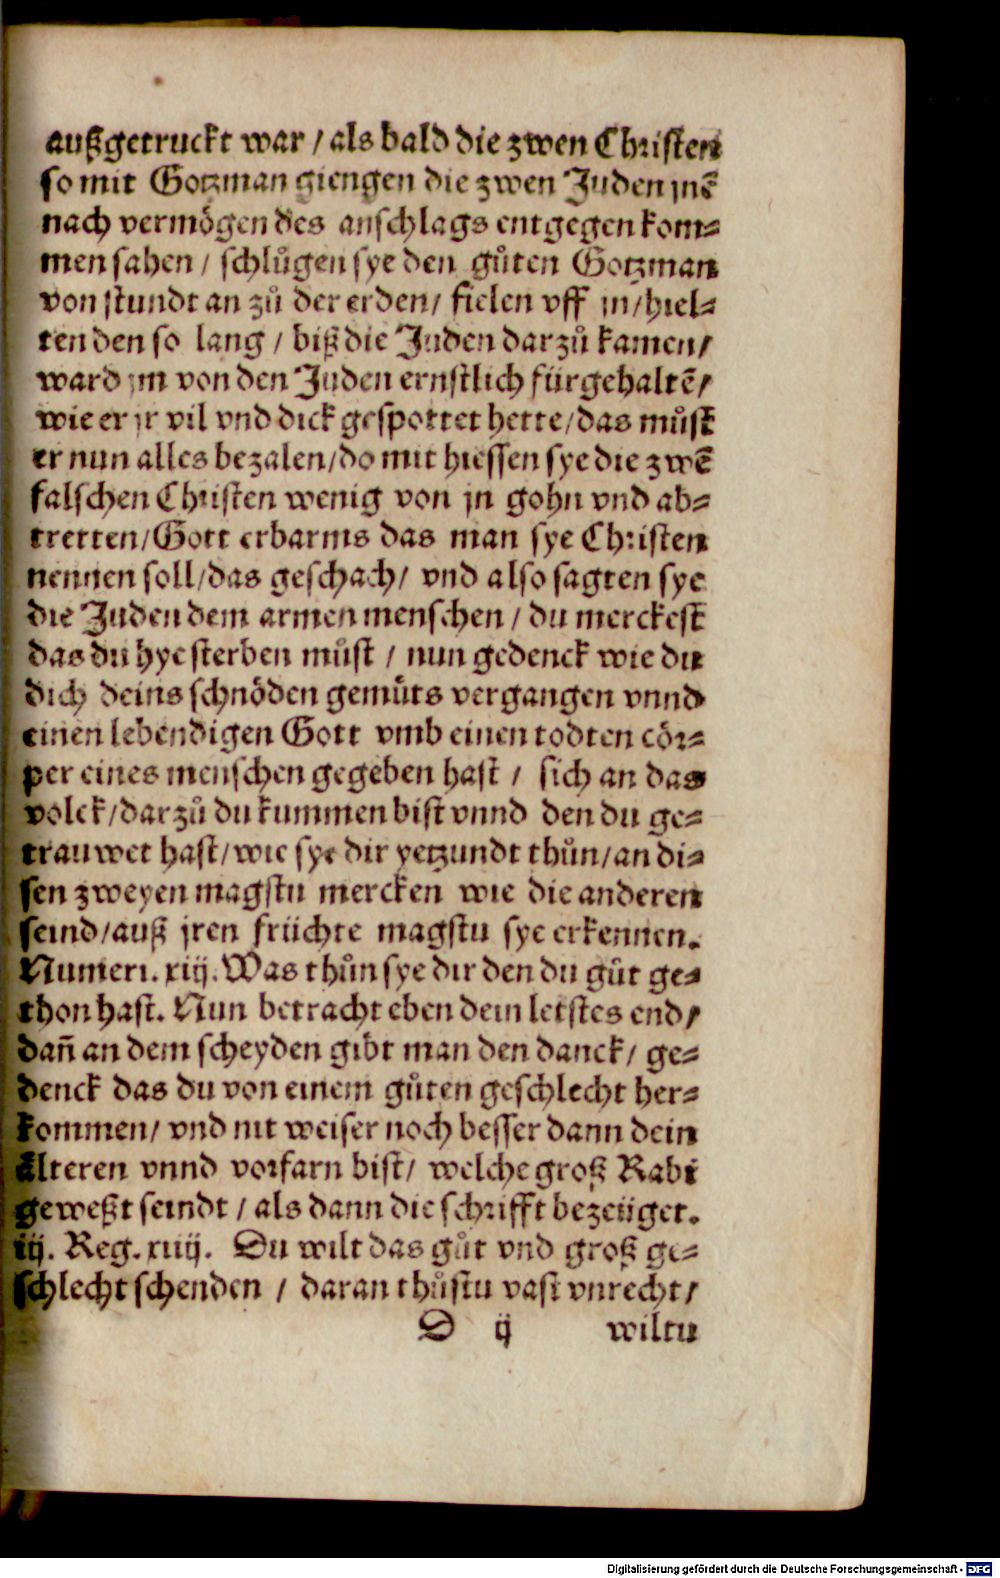 außgetruckt war / als bald die zwen Christen
so mit Gotzman giengen die zwen Juden jnẽ
nach vermögen des anschlags entgegen kom⸗
men sahen / schlůgen sye den gůten Gotzman
von stundt an zů der erden / fielen vff jn / hiel⸗
ten den so lang / biß die Juden darzů kamen /
ward jm von den Juden ernstlich fürgehaltẽ /
wie er jr vil vnd dick gespottet hette / das můst
er nun alles bezalen / do mit hiessen sye die zwẽ
falschen Christen wenig von jn gohn vnd ab⸗
tretten / Gott erbarms das man sye Christen
nennen soll / das geschach / vnd also sagten sye
die Juden dem armen menschen / du merckest
das du hye sterben můst / nun gedenck wie du
dich deins schnöden gemůts vergangen vnnd
einen lebendigen Gott vmb einen todten cör⸗
per eines menschen gegeben hast / sich an das
volck / darzů du kummen bist vnnd den du ge⸗
trauwet hast / wie sye dir yetzundt thůn / an di⸗
sen zweyen magstu mercken wie die anderen
seind / auß jren früchte magstu sye erkennen.
Numeri. xiij. Was thůn sye dir den du gůt ge⸗
thon hast. Nun betracht eben dein letstes end /
dañ an dem scheyden gibt man den danck / ge⸗
denck das du von einem gůten geschlecht her⸗
kommen / vnd nit weiser noch besser dann dein
älteren vnnd vorfarn bist / welche groß Rabi
geweßt seindt / als dann die schrifft bezeüget.
iij. Reg. xiiij. Du wilt das gůt vnd groß ge⸗
schlecht schenden / daran thůstu vast vnrecht /
D ij wiltu
Digitalisierung gefördert durch die Deutsche Forschungsgemeinschaft - DFG